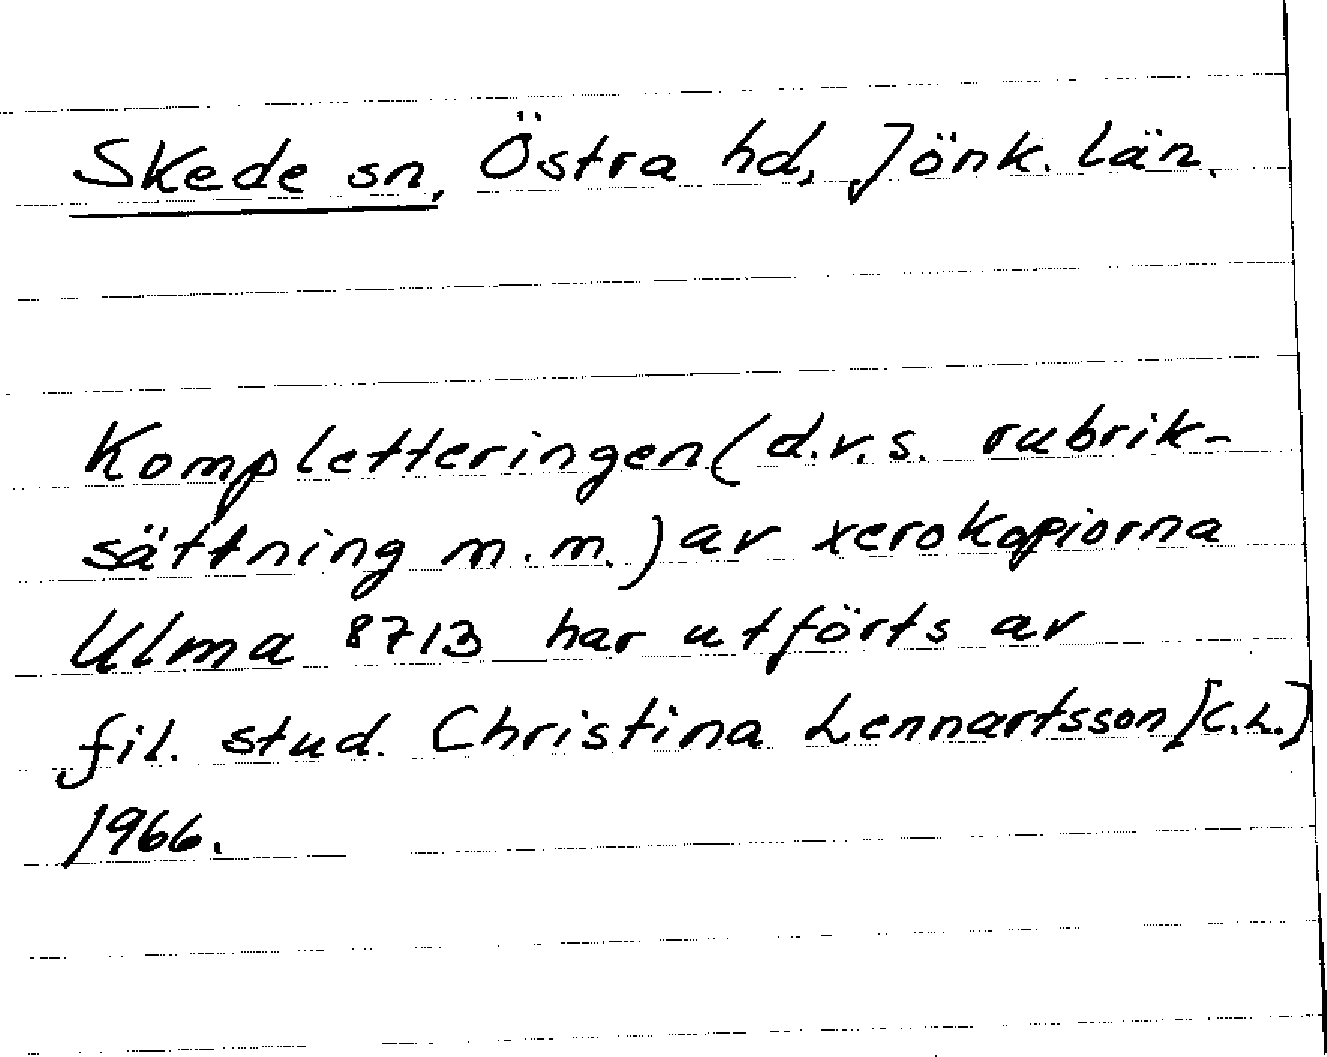 Skede sn, Östra hd, Jönk. län.
Kompletteringen (d.v.s. rubrik-
sättning m.m.) av xerokopiorna
Ulma 8713 har utförts av
fil. stud. Christina Lennartsson [C.L.]
1966.